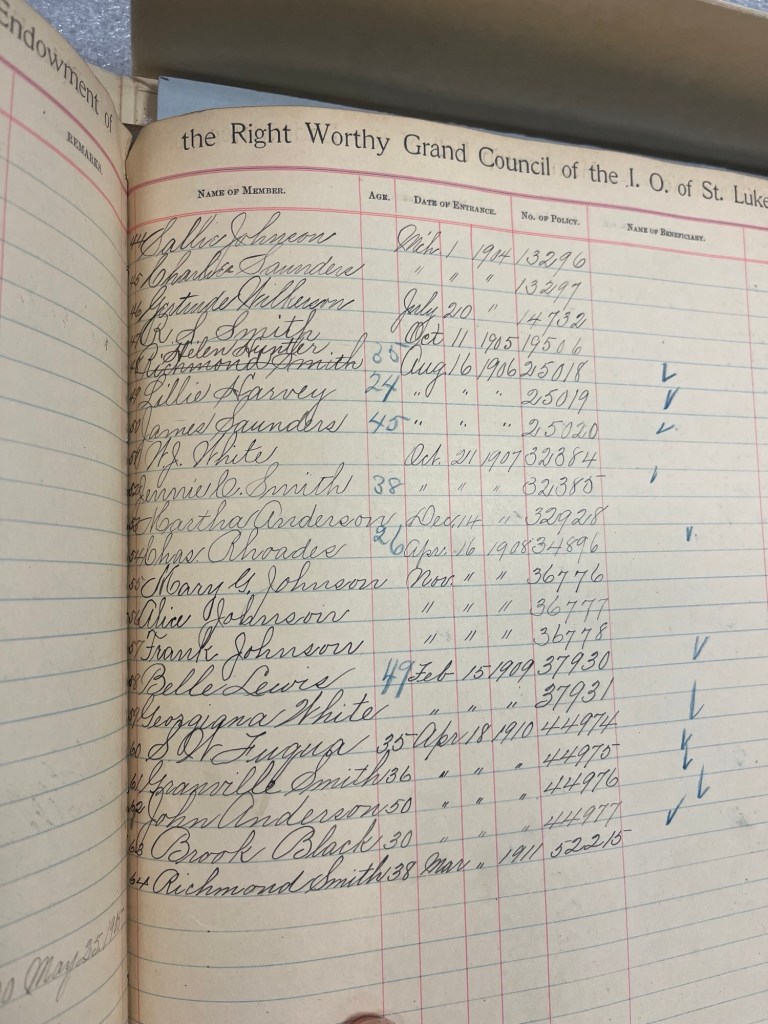 Endowment of
REMARKS.
the Right Worthy Grand Council of the I. O. of St. Luke
NAME OF MEMBER. AGE. DATE OF ENTRANCE. NO. OF POLICY. NAME OF BENEFICIARY.
44 Sallie Johnson Mch. 1 1904 13296
45 Charlie Saunders " " " 13297
46 Gertrude Wilkerson July 20 " 14732
47 R. S. Smith Oct 11 1905 19506
Helen Hunter
48 Richmond Smith 35 Aug 16 1906 25018 ✓
49 Lillie Harvey 24 " " " 25019 ✓
50 James Saunders 45 " " " 25020 ✓
51 W. J. White Oct. 21 1907 32384
52 Jennie C. Smith 38 " " " 32385
53 Martha Anderson Dec. 14 " 32928
54 Chas. Rhoades 26 Apr. 16 1908 34896
55 Mary G. Johnson Nov. " " 36776
56 Alice Johnson " " " 36777
57 Frank Johnson " " " 36778
58 Belle Lewis 49 Feb 15 1909 37930 ✓
59 Georgiana White " " " 37931
60 S W Fuqua 35 Apr 18 1910 44974
61 Granville Smith 36 " " " 44975
62 John Anderson 50 " " " 44976
63 Brook Black 30 " " " 44977 ✓
64 Richmond Smith 38 Mar " 1911 52215
May